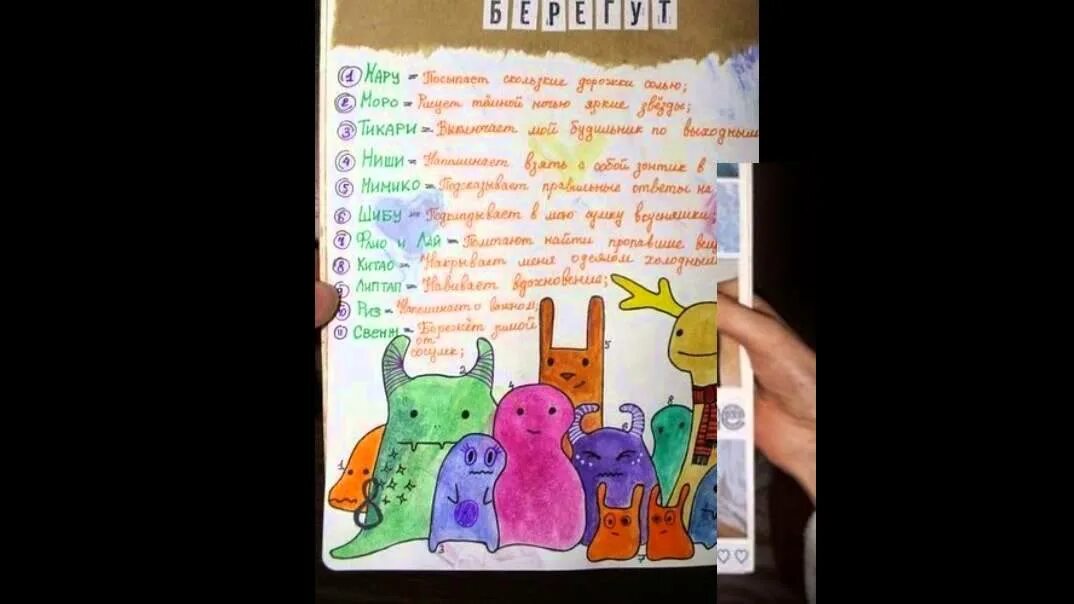 БЕРЕГУТ
1 Мару - Посыпает скользкие дорожки солью;
2 Моро - Рисует тёмной ночью яркие звёзды;
3 Тикари - Выключает мой будильник по выходным
4 Ниши - Напоминает взять с собой зонтик в
5 Мимико - Подсказывает правильные ответы на
6 Шибу - Подкидывает в мою сумку вкусняшки;
7 Флио и Лай - Помогают найти пропавшие вещ
8 Китао - Накрывает меня одеялом холодным
9 Липтап - Навивает вдохновение;
10 Риз - Напоминает о важном;
11 Свенн - Бережёт зимой
от
сосулек;
5
2
4
8
1
3
7